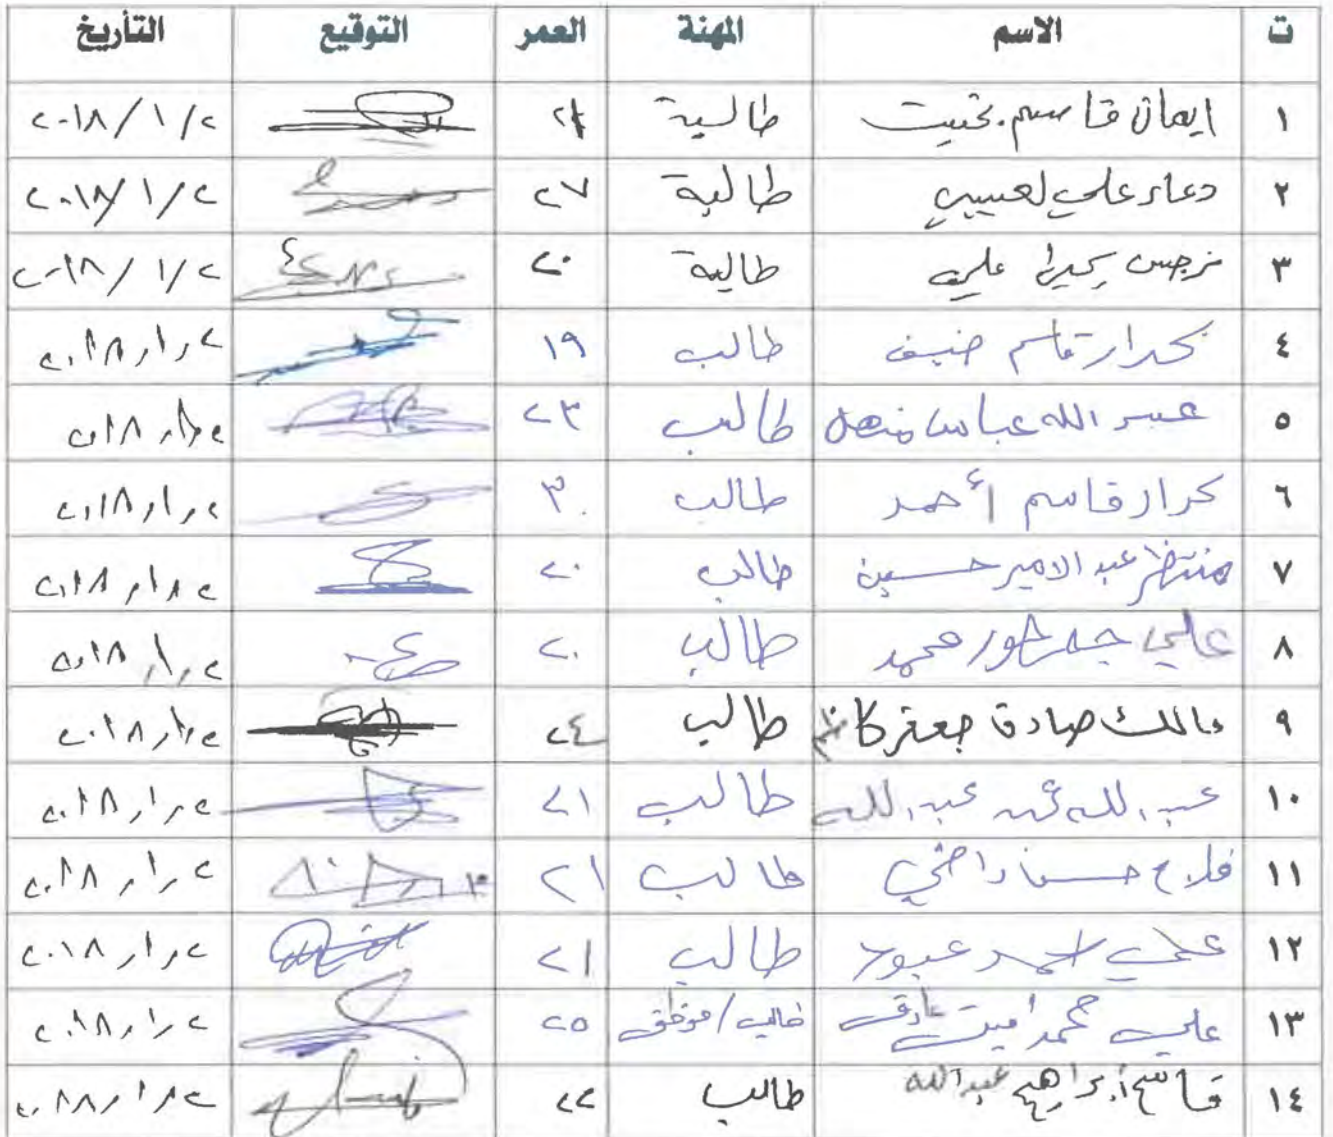 ت الاسم المهنة العمر التوقيع التأريخ
١ ايمان قاسم بخيت طالبة ٢٠١٨/١/٢
٢ دعاء علي لعيبي طالبة ٢٧ ٢٠١٨/١/٢
٣ نرجس علي طالبة ٢٠ ٢٠١٨/١/٢
٤ كرار قاسم ضيف طالب ١٩ ٢٠١٨/١/٢
٥ عبد الله عباس طالب ٢٣ ٢٠١٨/١/٢
٦ كرار قاسم أحمد طالب ٣٠ ٢٠١٨/١/٢
٧ منتظر عبد الامير حسين طالب ٢٠ ٢٠١٨/١/٢
٨ علي محمد طالب ٢٠ ٢٠١٨/١/٢
٩ مالك صادق جعفر كاظم طالب ٢٤ ٢٠١٨/١/٢
١٠ عبد الله عبد الله طالب ٢١ ٢٠١٨/١/٢
١١ فلاح حسن راضي طالب ٢١ ٢٠١٨/١/٢
١٢ علي احمد عبود طالب ٢١ ٢٠١٨/١/٢
١٣ علي محمد امين طالب/موظف ٢٥ ٢٠١٨/١/٢
١٤ قاسم ابراهيم عبدالله طالب ٢٢ ٢٠١٨/١/٢